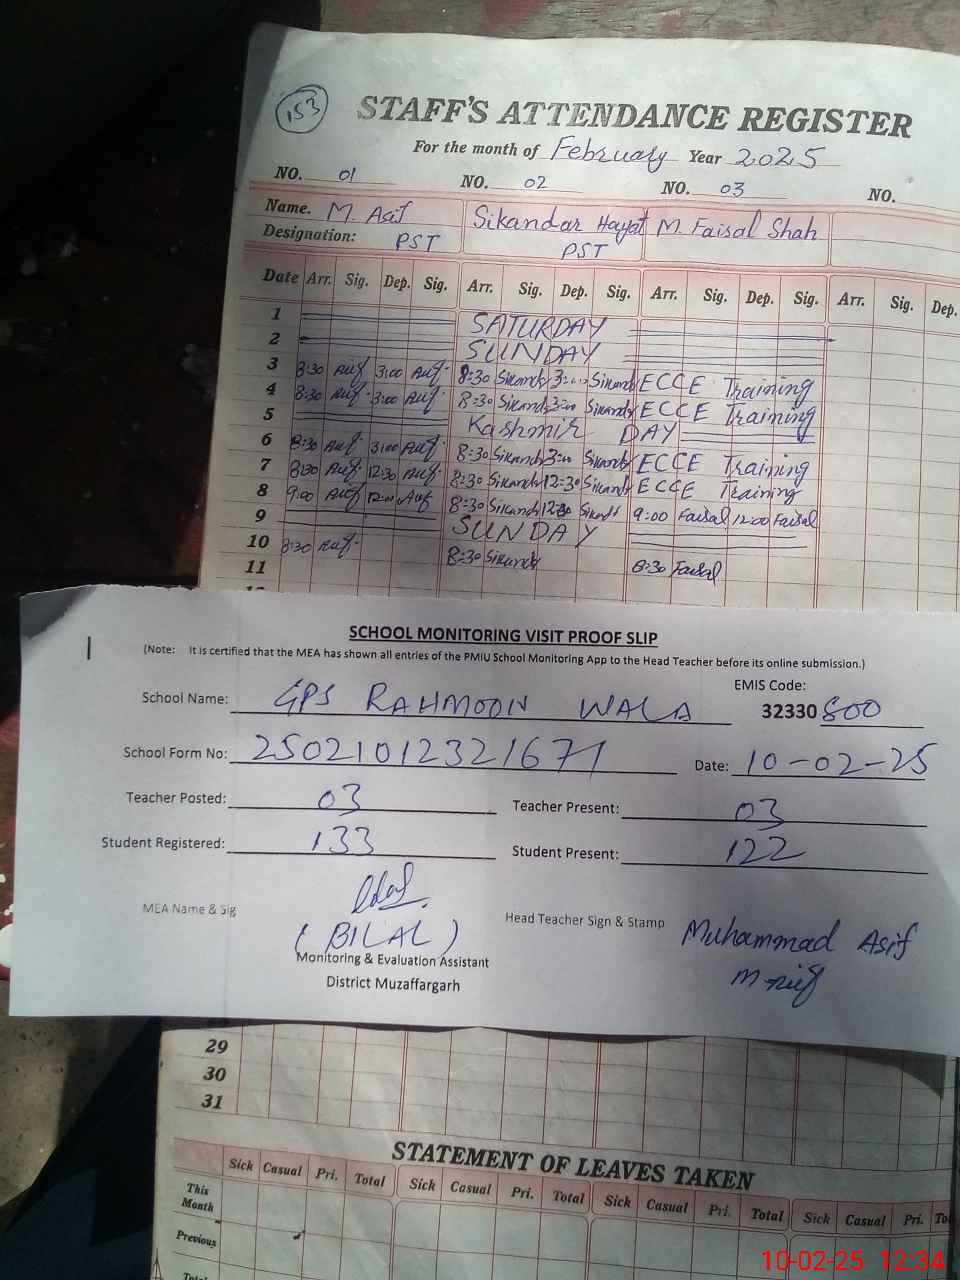 153
STAFF'S ATTENDANCE REGISTER
For the month of February Year 2025
NO. 01 NO. 02 NO. 03 NO.
Name. M. Asif Sikandar Hayat M. Faisal Shah
Designation: PST PST
Date Arr. Sig. Dep. Sig. Arr. Sig. Dep. Sig. Arr. Sig. Dep. Sig. Arr. Sig. Dep.
1 SATURDAY
2 SUNDAY
3 8:30 Asif 3:00 Asif 8:30 Sikandr 3:00 Sikandr ECCE Training
4 8:30 Asif 3:00 Asif 8:30 Sikandr 3:00 Sikandr ECCE Training
5 Kashmir DAY
6 8:30 Asif 3:00 Asif 8:30 Sikandr 3:00 Sikandr ECCE Training
7 8:30 Asif 12:30 Asif 8:30 Sikandr 12:30 Sikandr ECCE Training
8 9:00 Asif 12:00 Asif 8:30 Sikandr 12:30 Sikandr 9:00 Faisal 12:00 Faisal
9 SUNDAY
10 8:30 Asif 8:30 Sikandr 8:30 Faisal
11
SCHOOL MONITORING VISIT PROOF SLIP
(Note: It is certified that the MEA has shown all entries of the PMIU School Monitoring App to the Head Teacher before its online submission.)
EMIS Code:
School Name: GPS RAHMOON WALA 32330 800
School Form No: 25021012321671 Date: 10-02-25
Teacher Posted: 03 Teacher Present: 03
Student Registered: 133 Student Present: 122
MEA Name & Sig Head Teacher Sign & Stamp Muhammad Asif
(BILAL) M. Asif
Monitoring & Evaluation Assistant
District Muzaffargarh
29
30
31
STATEMENT OF LEAVES TAKEN
Sick Casual Pri. Total Sick Casual Pri. Total Sick Casual Pri. Total Sick Casual Pri. To
This Month
Previous
Total
10-02-25 12:34